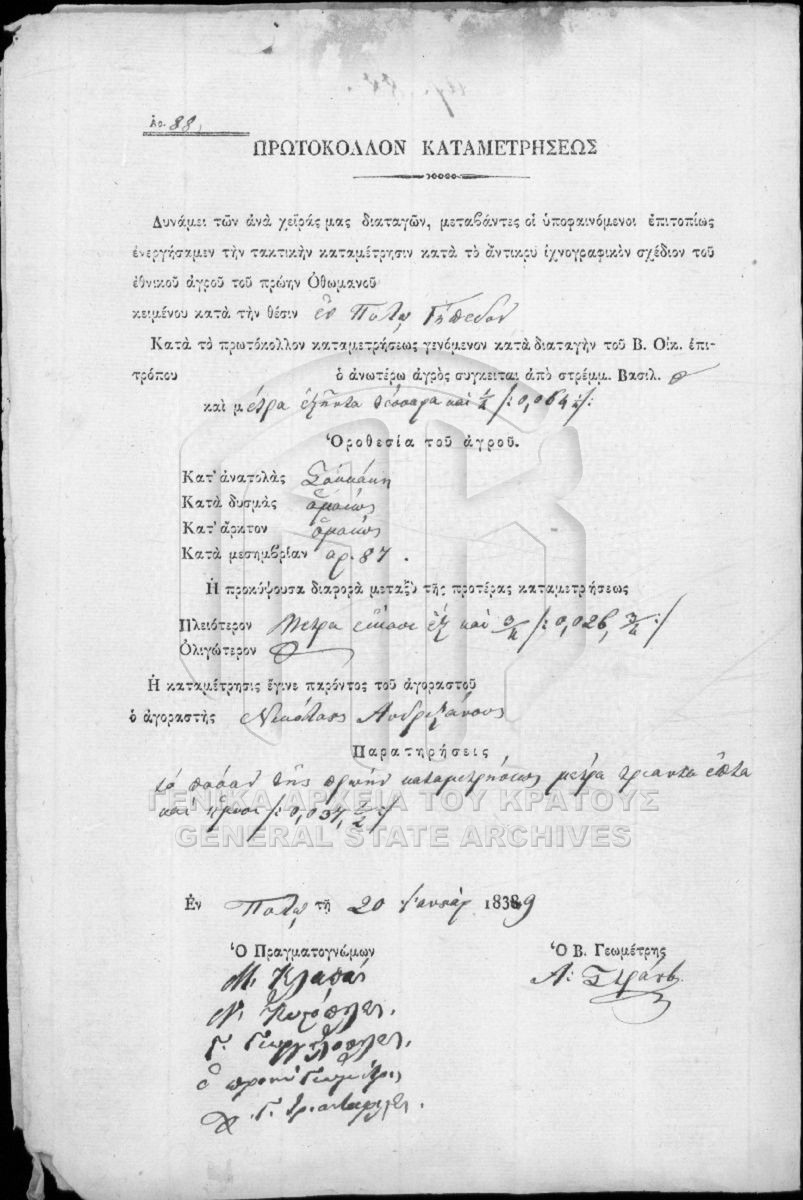 Ἀρ. 88,
ΠΡΩΤΟΚΟΛΛΟΝ ΚΑΤΑΜΕΤΡΗΣΕΩΣ
Δυνάμει τῶν ἀνὰ χεῖράς μας διαταγῶν, μεταβάντες οἱ ὑποφαινόμενοι ἐπιτοπίως
ἐνεργήσαμεν τὴν τακτικὴν καταμέτρησιν κατὰ τὸ ἄντικρυ ἰχνογραφικὸν σχέδιον τοῦ
ἐθνικοῦ ἀγροῦ τοῦ πρώην Ὀθωμανοῦ
κειμένου κατὰ τὴν θέσιν ἐν Γήπεδον
Κατὰ τὸ πρωτόκολλον καταμετρήσεως γενόμενον κατὰ διαταγὴν τοῦ Β. Οἰκ. ἐπι-
τρόπου ὁ ἀνωτέρω ἀγρὸς συγκειται ἀπὸ στρέμμ. Βασιλ.
καὶ μέτρα ἑξήντα τέσσαρα καὶ /: 0,064 :/
Ὁροθεσία τοῦ ἀγροῦ.
Κατ' ἀνατολὰς Σοκάκη
Κατὰ δυσμὰς ὁμοίως
Κατ' ἄρκτον ὁμοίως
Κατὰ μεσημβρίαν αρ. 87.
Ἡ προκύψουσα διαφορὰ μεταξὺ τῆς προτέρας καταμετρήσεως
Πλειότερον Μετρα εἴκοσι ἕξ καὶ 3/4 /: 0,026, 3/4 :/
Ὀλιγώτερον
Ἡ καταμέτρησις ἔγινε παρόντος τοῦ ἀγοραστοῦ
ὁ ἀγοραστὴς Νικόλαος
Παρατηρήσεις
τὸ ποσὸν τῆς πρώην καταμετρήσεως μέτρα τριαντα ἑπτα
και ημισυ /: 0,037, 1/2 :/
ΓΕΝΙΚΑ ΑΡΧΕΙΑ ΤΟΥ ΚΡΑΤΟΥΣ
GENERAL STATE ARCHIVES
Ἐν τῇ 20 1839
Ὁ Πραγματογνώμων Ὁ Β. Γεωμέτρης
Μ.
Ν.
Γ.
ὁ πρώην Γεωμέτρις
Γ.